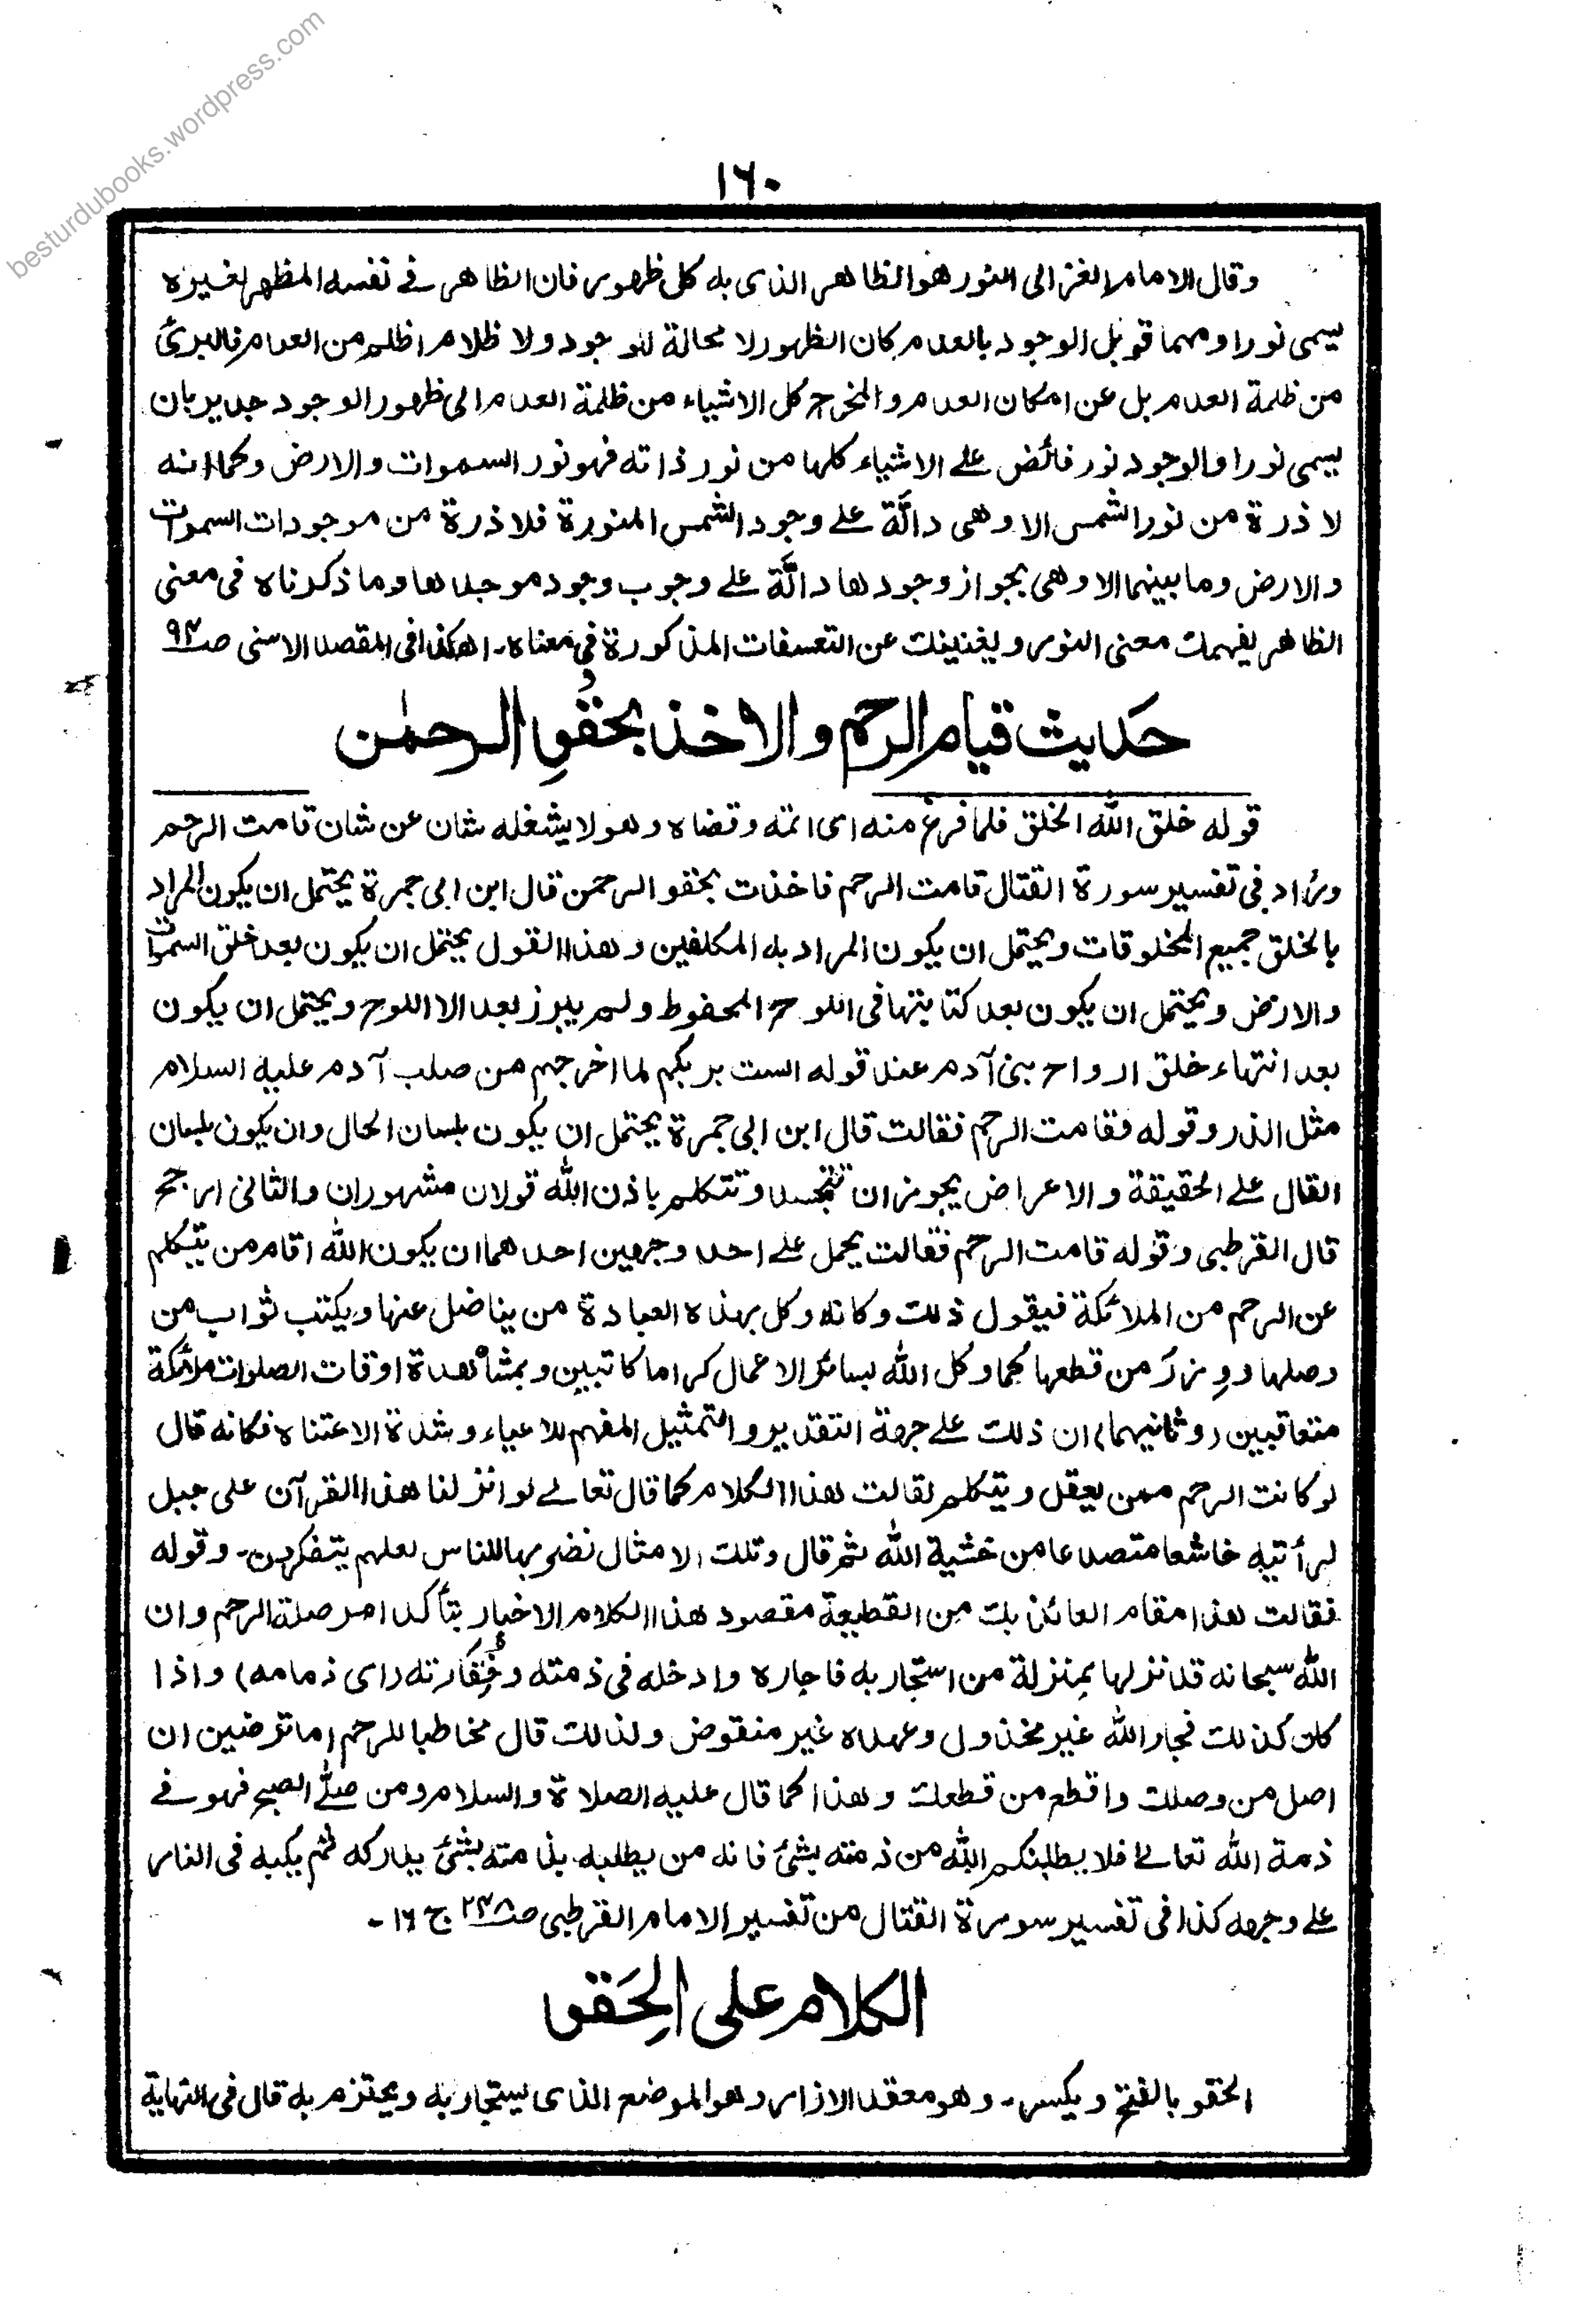 besturdubooks.wordpress.com
١٦٠
وقال الامام الغزالى النور هو الظاهر الذى به كل ظهور فان الظاهر فى نفسه المظهر لغيره
يسمى نورا ومهما قوبل الوجود بالعدم كان الظهور لا محالة للوجود ولا ظلام اظلم من العدم فالبرئ
من ظلمة العدم بل عن امكان العدم والمخرج كل الاشياء من ظلمة العدم الى ظهور الوجود جدير بان
يسمى نورا والوجود نور فائض على الاشياء كلها من نور ذاته فهو نور السموات والارض وكما انه
لا ذرة من نور الشمس الا وهى دالّة على وجود الشمس المنورة فلا ذرة من موجودات السموات
والارض وما بينهما الا وهى بجواز وجودها دالّة على وجوب وجود موجدها وما ذكرناه فى معنى
الظاهر يفهمك معنى النور ويغنيك عن التعسفات المذكورة فى معناه۔ اھ كذا فى المقصد الاسنى صـ٩٣
حَديث قيام الرحم والاخذ بحَقُوِ الرحمٰن
قوله خلق الله الخلق فلما فرغ منه اى اتمه وقضاه وهو لا يشغله شان عن شان قامت الرحم
وزاد فى تفسير سورة القتال قامت الرحم فاخذت بحقو الرحمن قال ابن ابى جمرة يحتمل ان يكون المراد
بالخلق جميع المخلوقات ويحتمل ان يكون المراد به المكلفين وهذا القول يحتمل ان يكون بعد خلق السموات
والارض ويحتمل ان يكون بعد كتابتها فى اللوح المحفوظ ولم يبرز بعد الا اللوح ويحتمل ان يكون
بعد انتهاء خلق ارواح بنى آدم عند قوله الست بربكم لما اخرجهم من صلب آدم عليه السلام
مثل الذر وقوله فقامت الرحم فقالت قال ابن ابى جمرة يحتمل ان يكون بلسان الحال وان يكون بلسان
القال على الحقيقة والاعراض يجوز ان تتجسد وتتكلم باذن الله قولان مشهوران والثانى ارجح
قال القرطبى وقوله قامت الرحم فقالت يحمل على احد وجهين احدهما ان يكون الله اقام من يتكلم
عن الرحم من الملائكة فيقول ذلك وكانه وكل بهذه العبادة من يناضل عنها ويكتب ثواب من
وصلها ووِزرَ من قطعها كما وكل الله بسائر الاعمال كراما كاتبين وبمشاهدة اوقات الصلوات ملائكة
متعاقبين (وثانيهما) ان ذلك على جهة التقدير والتمثيل المفهم للاعياء وشدة الاعتناء فكانه قال
لو كانت الرحم ممن يعقل ويتكلم لقالت هذا الكلام كما قال تعالى لو انزلنا هذا القرآن على جبل
لرأيته خاشعا متصدعا من خشية الله ثم قال وتلك الامثال نضربها للناس لعلهم يتفكرون۔ وقوله
فقالت هذا مقام العائذ بك من القطيعة مقصود هذا الكلام الاخبار بتأكد امر صلة الرحم وان
الله سبحانه قد نزلها بمنزلة من استجار به فاجاره وادخله فى ذمته وخُفَارته (اى ذمامه) واذا
كان كذلك فجار الله غير مخذول وعهده غير منقوض ولذلك قال مخاطبا للرحم اما ترضين ان
اصل من وصلك واقطع من قطعك وهذا كما قال عليه الصلاة والسلام ومن صلّى الصبح فهو فى
ذمة الله تعالى فلا يطلبنكم الله من ذمته بشئ فانه من يطلبه بذمته بشئ يدركه ثم يكبه فى النار
على وجهه كذا فى تفسير سورة القتال من تفسير الامام القرطبى صـ٢٤٨ ج ١٦ ۔
الكلام على الحِقَو
الحقو بالفتح ويكسر۔ وهو معقد الازار وهو الموضع الذى يستجار به ويحتزم به قال فى النهاية